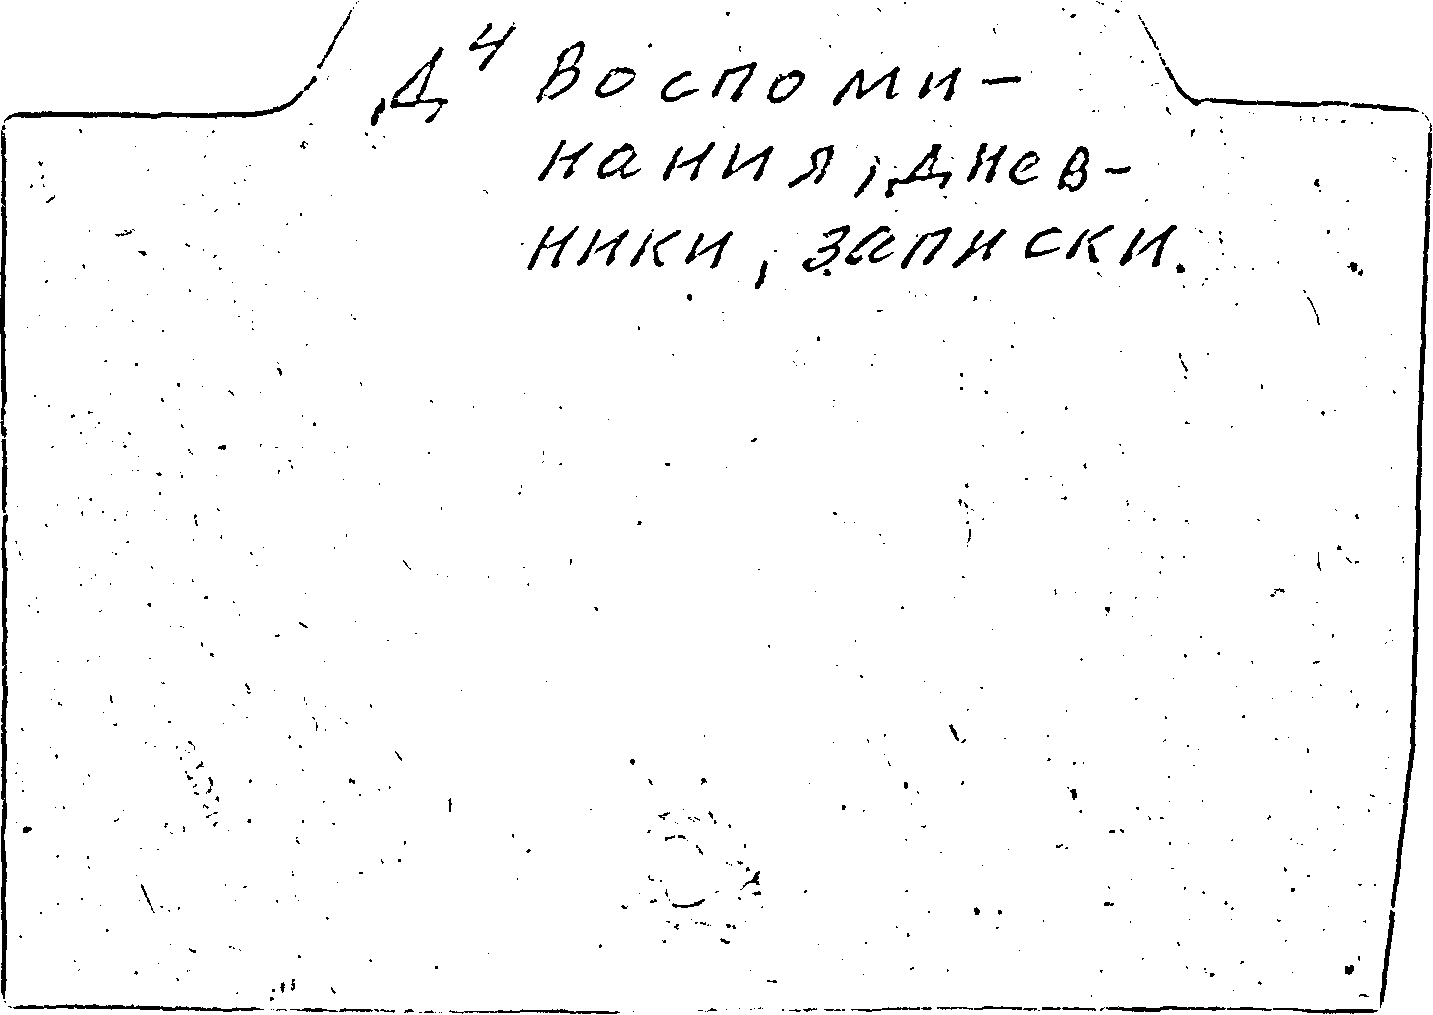 Д⁴ Воспоми-
нания, днев-
ники, записки.